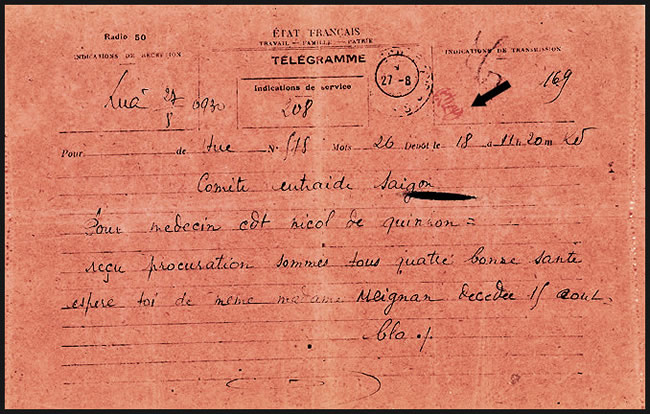 Radio 50
ÉTAT FRANÇAIS
TRAVAIL — FAMILLE — PATRIE
TÉLÉGRAMME
INDICATIONS DE RÉCEPTION
Indications de service
INDICATIONS DE TRANSMISSION
27/8 0930
208
27-8
169
Pour de hue N° 515 Mots 26 Dépôt le 18 à 11h 20m
Comite entraide Saigon
Pour medecin cdt nicol de quinhon =
reçu procuration sommes tous quatre bonne sante
espere toi de meme madame Meignan decedee 15 aout